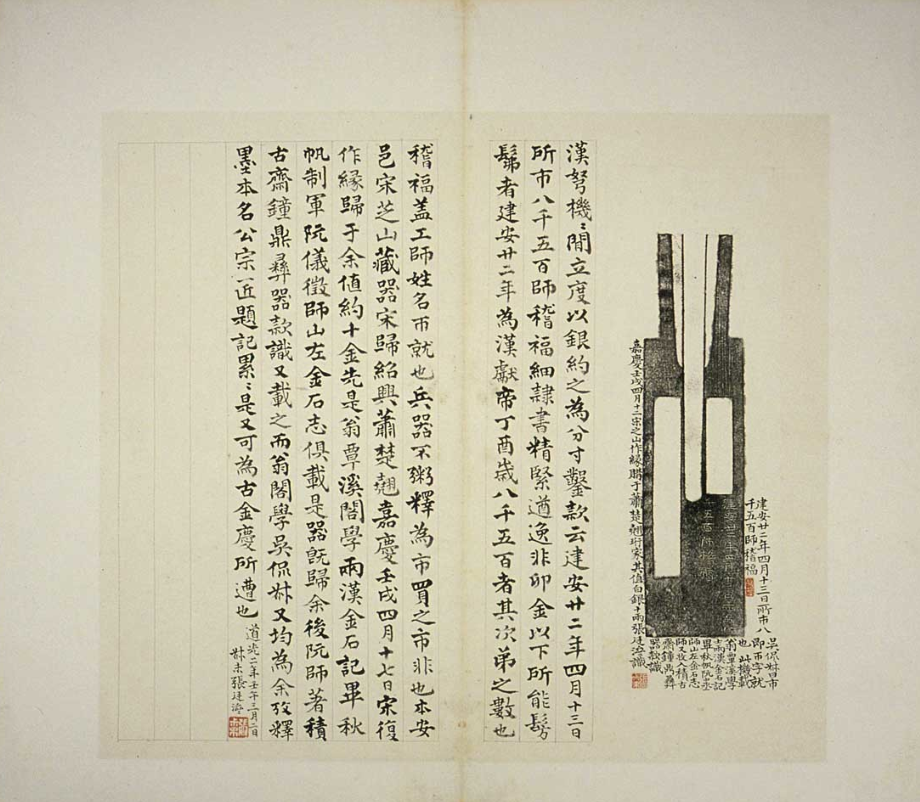 建安廿二年四月十三日所市八
千五百師稽福
吳侃叔曰市
即帀字就
也 此機載
翁覃溪學
士兩漢金石記
畢秋帆阮丞
師山左金石志
師又收入積古
齋鐘鼎彝
器款識
嘉慶壬戌四月十二宋之山作緣購于蕭楚翹珩家其值白銀十兩張廷濟識
漢弩機〻閒立度以銀約之為分寸鑿款云建安廿二年四月十三日
所市八千五百師稽福細隸書精緊遒逸非卯金以下所能髣
髴者建安廿二年為漢獻帝丁酉歲八千五百者其次弟之數也
稽福蓋工師姓名帀就也兵器不粥釋為市買之市非也本安
邑宋芝山藏器宋歸紹興蕭楚翹嘉慶壬戌四月十七日宋復
作緣歸于余值約十金先是翁覃溪閣學兩漢金石記畢秋
帆制軍阮儀徵師山左金石志俱載是器旣歸余後阮師著積
古齋鐘鼎彝器款識又載之而翁閣學吳侃叔又均為余攷釋
墨本名公宗匠題記累〻是又可為古金慶所遭也
道光二年壬午三月二日
叔未張廷濟